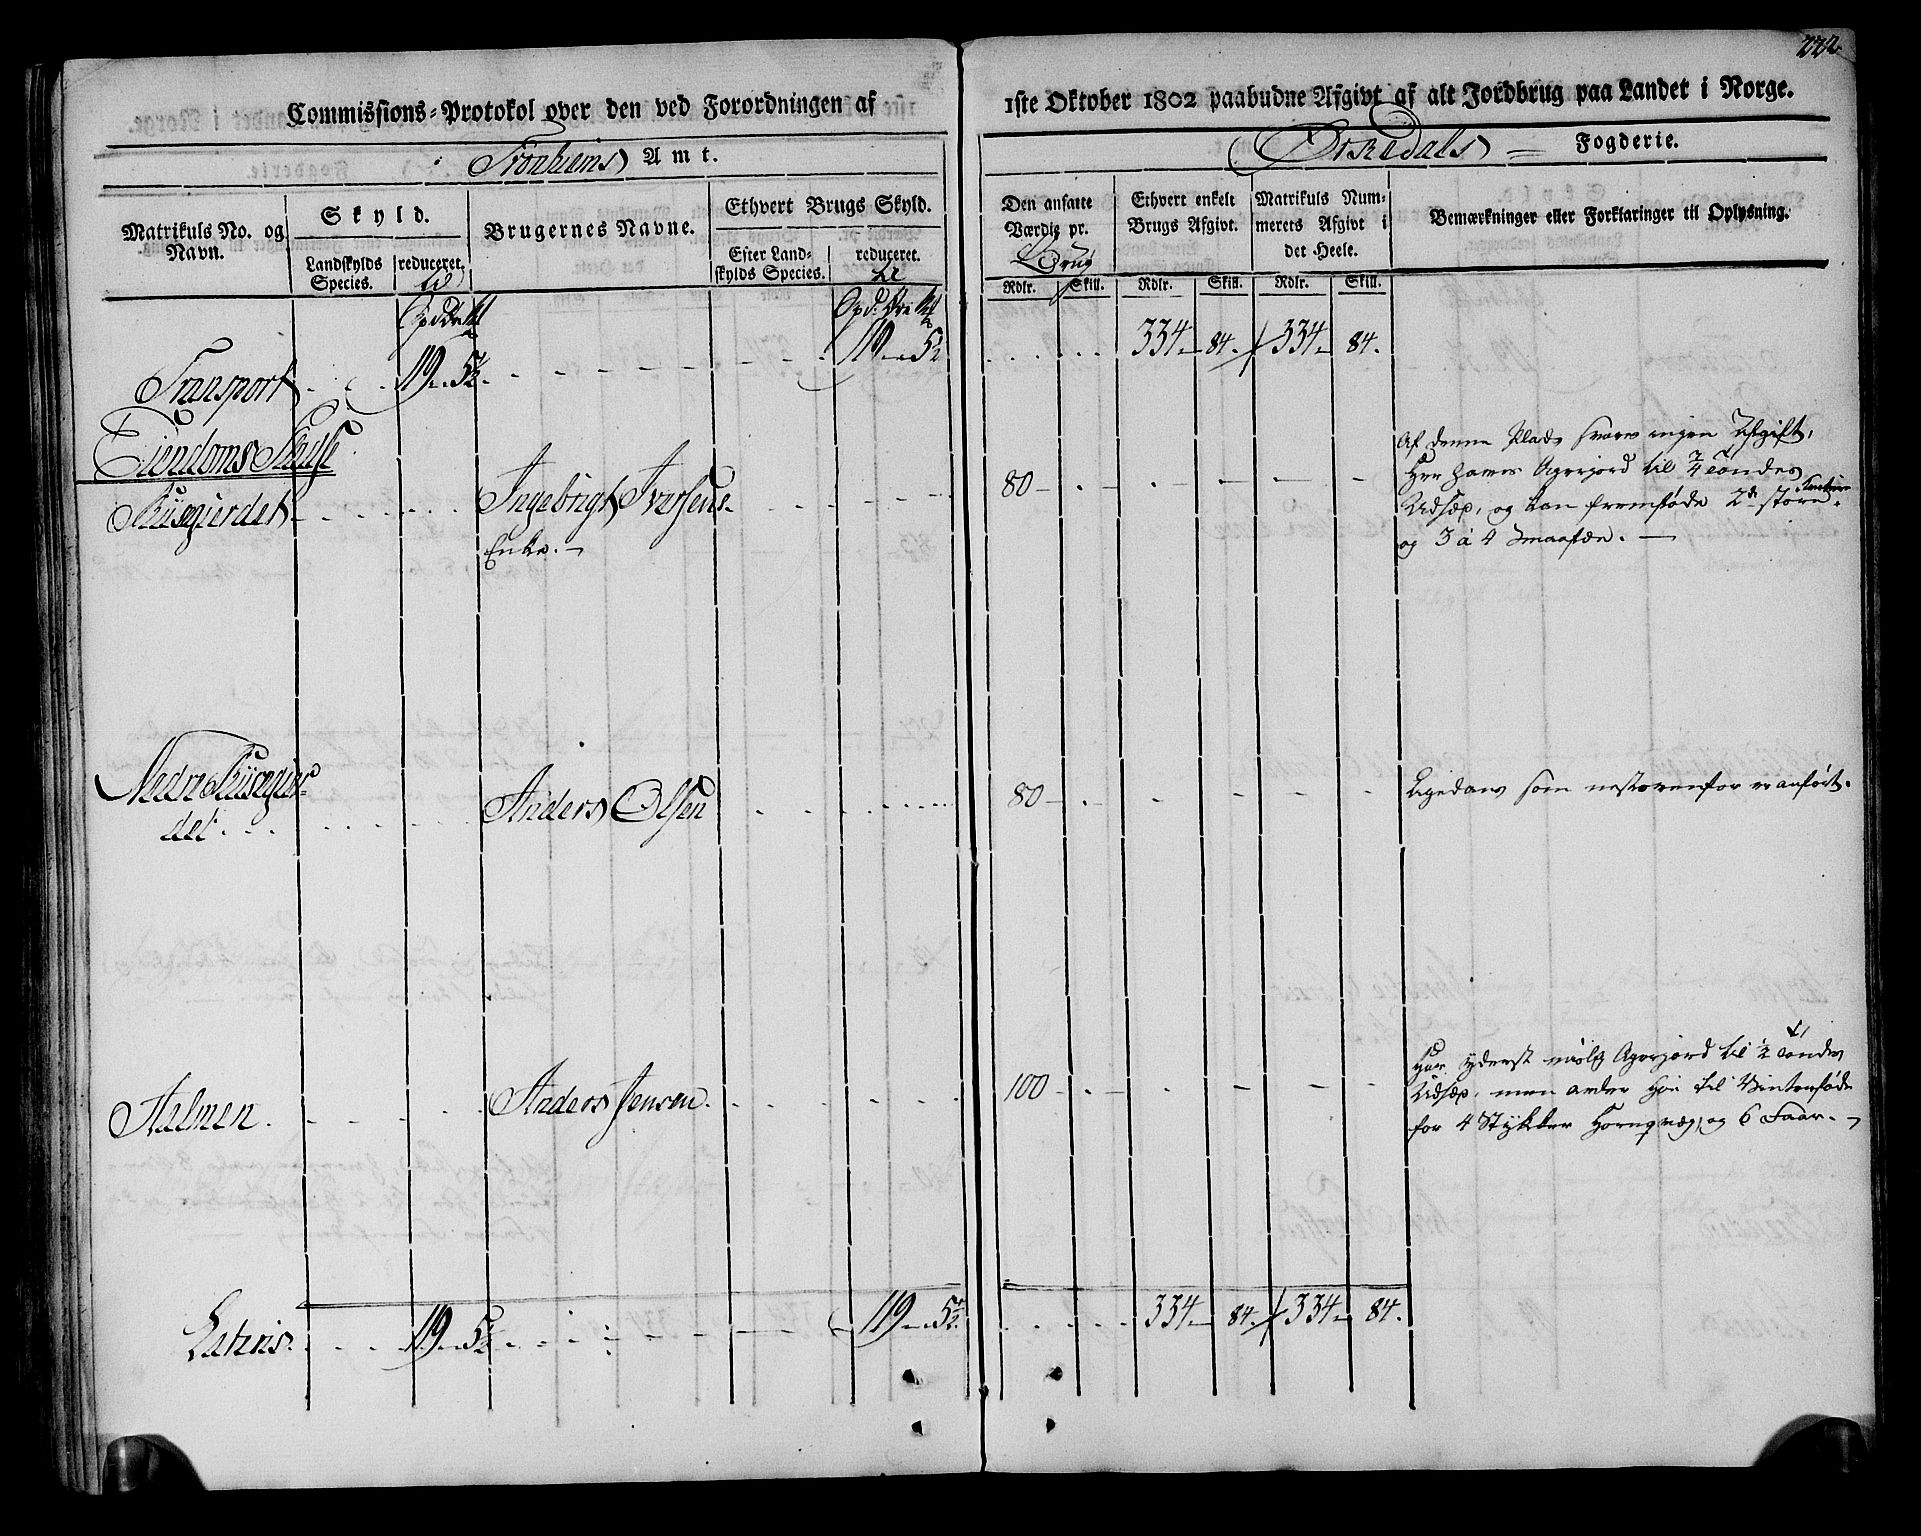 222
Commissions-Protokol over den ved Forordningen af
1ste Oktober 1802 paabudne Afgivt af alt Jordbrug paa Landet i Norge.
Tronhiems Amt.
Orkedals Fogderie.
Matrikuls No. og Navn.
Skyld.
Landskylds Species.
reduceret
til
Brugernes Navne.
Ethvert Brugs Skyld.
Efter Landskylds Species.
reduceret.
til
Den ansatte Værdie pr.
Brug
Rdlr. Skill.
Ethvert enkelt Brugs Afgivt.
Rdlr. Skill.
Matrikuls Nummerets Afgivt i det Heele.
Rdlr. Skill.
Bemærkninger eller Forklaringer til Oplysning.
Transport 119 5½ 119 5½ 334 84. 334 84.
Eiendoms
Ingebrigt Iversens 80
Enke.
Af denne Plads svares ingen Afgift,
Agerjord til ¾ Tondes
Udsæd, og kan fremføde 2de store
og 3 à 4 Smaafæe.
Nedre
det
Anders Olsen 80
Ligedan som næstovenfor er anført.
Aalmen. Anders Jensen. 100
Har yderst Agerjord til ½ Tondes
Udsæd, men Høe til Vinterføde
for 4 Stykker Hornqvæg, og 6 Faar.
Lateris. 119 5½ 119 5½ 334 84. 334 84.